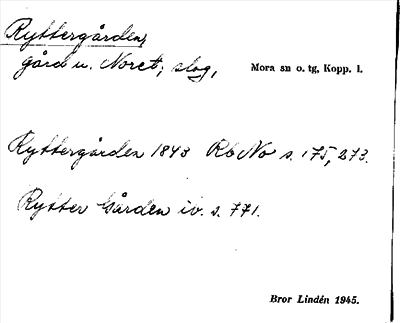 Ryttergården,
gård u. Noret; slog,
Mora sn o. tg, Kopp. l.
Ryttergården 1843 RbNo s. 175, 273.
Rytter Gården iv. s. 771.
Bror Lindén 1945.